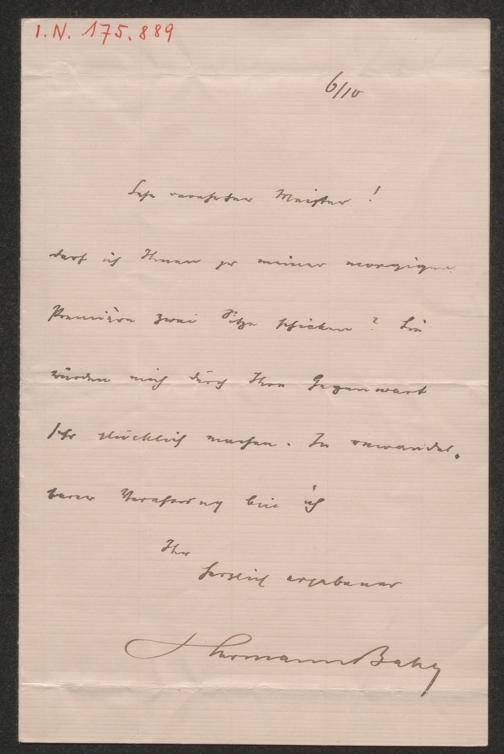 I.N. 175.889
6/10
Sehr verehrter Meister!
darf ich Ihnen zu meiner morgigen
Première zwei Sitze schicken? Sie
würden mich durch Ihre Gegenwart
sehr glücklich machen. In unwandel-
barer Verehrung bin ich
Ihr
herzlich ergebener
Hermann Bahr